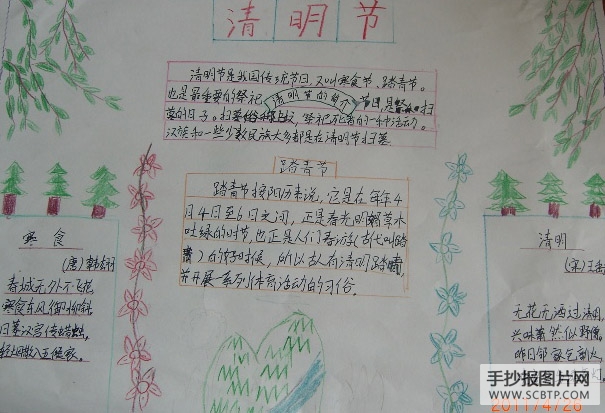 清明节
清明节是我国传统节日,又叫寒食节、踏青节。
也是最重要的祭祀
清明节的简介
节日,是祭祖扫
墓的日子。扫墓俗称上坟,祭祀死者的一种活动。
汉族和一些少数民族大多都是在清明节扫墓
踏青节
踏青节按阳历来说,它是在每年4
月4日至6日之间,正是春光明媚草木
吐绿的时节,也正是人们春游(古代叫踏
青)的好时候,所以故人有清明踏青,
并开展一系列体育活动的习俗。
寒食
(唐)韩翃
春城无处不飞花
寒食东风御柳斜
日暮汉宫传蜡烛,
轻烟散入五侯家。
清明
(宋)王
无花无酒过清明,
兴味萧然似野僧。
昨日邻家乞新火,
手抄报图片网
WWW.SCBTP.COM
2011/4/20